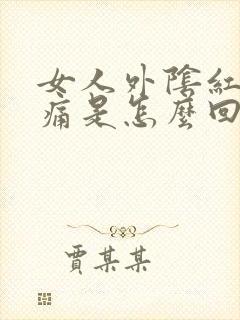 女人外陰紅
痛是怎麼回
賈某某